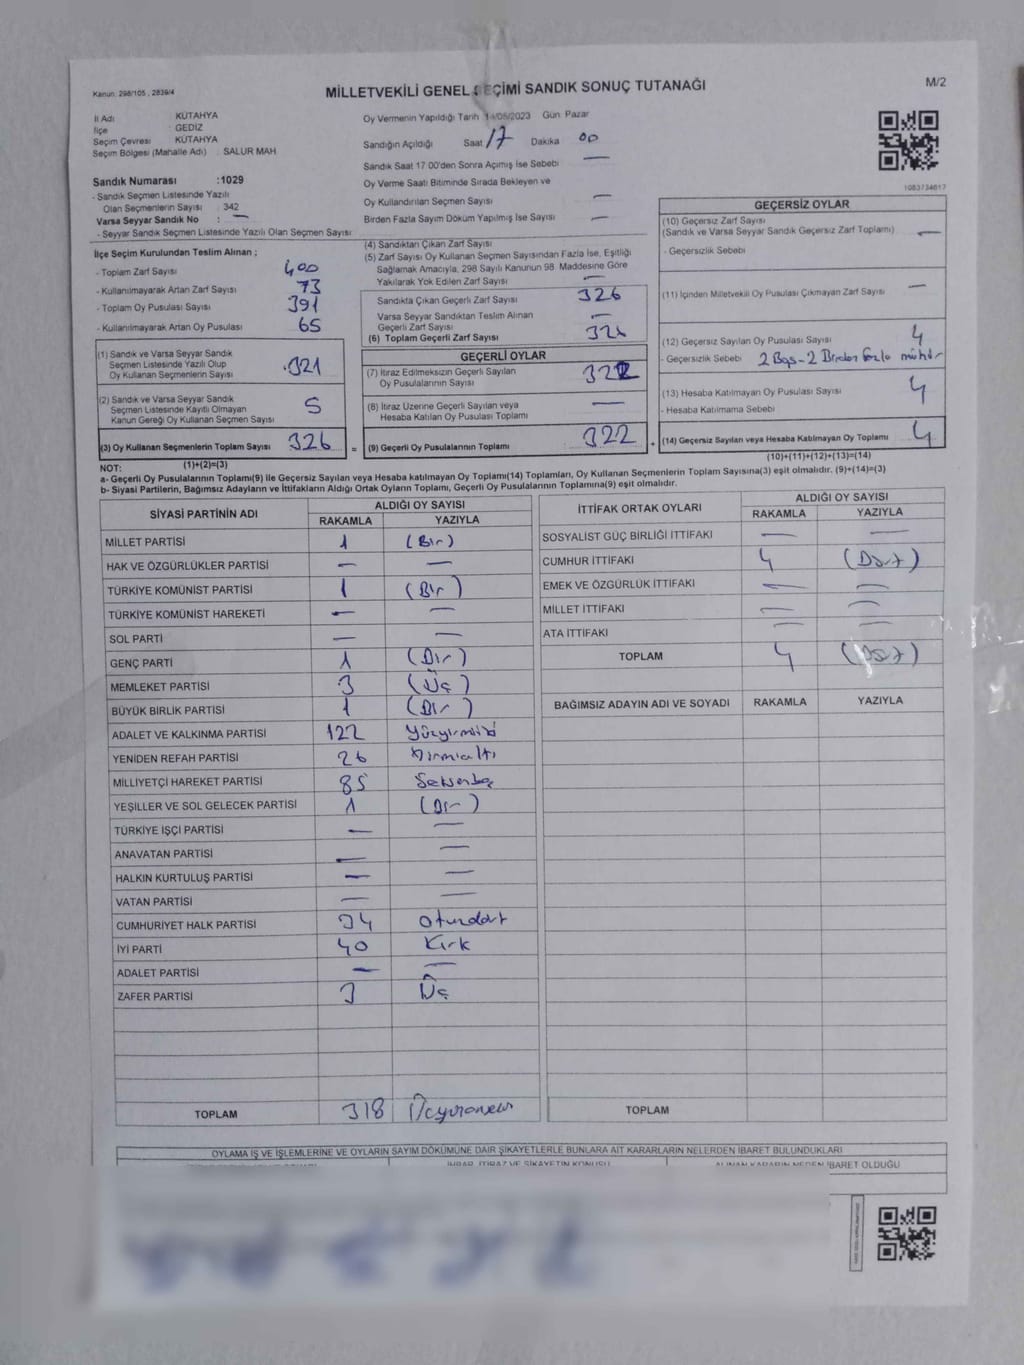 Kanun: 298/105, 2839/4
MİLLETVEKİLİ GENEL SEÇİMİ SANDIK SONUÇ TUTANAĞI
M/2
İl Adı : KÜTAHYA
İlçe : GEDİZ
Seçim Çevresi : KÜTAHYA
Seçim Bölgesi (Mahalle Adı) : SALUR MAH.
Oy Vermenin Yapıldığı Tarih 14/05/2023 Gün Pazar
Sandığın Açıldığı Saat 17 Dakika 00
Sandık Saat 17:00'den Sonra Açılmış İse Sebebi —
Oy Verme Saati Bitiminde Sırada Bekleyen ve
Oy Kullandırılan Seçmen Sayısı —
Birden Fazla Sayım Döküm Yapılmış İse Sayısı —
1083734617
Sandık Numarası :1029
- Sandık Seçmen Listesinde Yazılı
Olan Seçmenlerin Sayısı : 342
Varsa Seyyar Sandık No : —
- Seyyar Sandık Seçmen Listesinde Yazılı Olan Seçmen Sayısı:
İlçe Seçim Kurulundan Teslim Alınan ;
- Toplam Zarf Sayısı 400
- Kullanılmayarak Artan Zarf Sayısı 73
- Toplam Oy Pusulası Sayısı 391
- Kullanılmayarak Artan Oy Pusulası 65
(1) Sandık ve Varsa Seyyar Sandık
Seçmen Listesinde Yazılı Olup
Oy Kullanan Seçmenlerin Sayısı 321
(2) Sandık ve Varsa Seyyar Sandık
Seçmen Listesinde Kayıtlı Olmayan
Kanun Gereği Oy Kullanan Seçmen Sayısı 5
(3) Oy Kullanan Seçmenlerin Toplam Sayısı 326 =
(1)+(2)=(3)
(4) Sandıktan Çıkan Zarf Sayısı
(5) Zarf Sayısı Oy Kullanan Seçmen Sayısından Fazla İse, Eşitliği
Sağlamak Amacıyla, 298 Sayılı Kanunun 98. Maddesine Göre
Yakılarak Yok Edilen Zarf Sayısı —
Sandıkta Çıkan Geçerli Zarf Sayısı 326
Varsa Seyyar Sandıktan Teslim Alınan
Geçerli Zarf Sayısı —
(6) Toplam Geçerli Zarf Sayısı 326
GEÇERLİ OYLAR
(7) İtiraz Edilmeksizin Geçerli Sayılan
Oy Pusulalarının Sayısı 322
(8) İtiraz Üzerine Geçerli Sayılan veya
Hesaba Katılan Oy Pusulası Toplamı —
(9) Geçerli Oy Pusulalarının Toplamı 322 +
GEÇERSİZ OYLAR
(10) Geçersiz Zarf Sayısı
(Sandık ve Varsa Seyyar Sandık Geçersiz Zarf Toplamı) —
- Geçersizlik Sebebi
(11) İçinden Milletvekili Oy Pusulası Çıkmayan Zarf Sayısı —
(12) Geçersiz Sayılan Oy Pusulası Sayısı 4
- Geçersizlik Sebebi 2 Boş-2 Birden fazla mühür
(13) Hesaba Katılmayan Oy Pusulası Sayısı 4
- Hesaba Katılmama Sebebi
(14) Geçersiz Sayılan veya Hesaba Katılmayan Oy Toplamı 4
(10)+(11)+(12)+(13)=(14)
NOT:
a- Geçerli Oy Pusulalarının Toplamı(9) ile Geçersiz Sayılan veya Hesaba katılmayan Oy Toplamı(14) Toplamları, Oy Kullanan Seçmenlerin Toplam Sayısına(3) eşit olmalıdır. (9)+(14)=(3)
b- Siyasi Partilerin, Bağımsız Adayların ve İttifakların Aldığı Ortak Oyların Toplamı, Geçerli Oy Pusulalarının Toplamına(9) eşit olmalıdır.
SİYASİ PARTİNİN ADI ALDIĞI OY SAYISI
RAKAMLA YAZIYLA
MİLLET PARTİSİ 1 (Bir)
HAK VE ÖZGÜRLÜKLER PARTİSİ — —
TÜRKİYE KOMÜNİST PARTİSİ 1 (Bir)
TÜRKİYE KOMÜNİST HAREKETİ — —
SOL PARTİ — —
GENÇ PARTİ 1 (Bir)
MEMLEKET PARTİSİ 3 (Üç)
BÜYÜK BİRLİK PARTİSİ 1 (Bir)
ADALET VE KALKINMA PARTİSİ 122 Yüzyirmiiki
YENİDEN REFAH PARTİSİ 26 Yirmialtı
MİLLİYETÇİ HAREKET PARTİSİ 85 Seksenbeş
YEŞİLLER VE SOL GELECEK PARTİSİ 1 (Bir)
TÜRKİYE İŞÇİ PARTİSİ — —
ANAVATAN PARTİSİ — —
HALKIN KURTULUŞ PARTİSİ — —
VATAN PARTİSİ — —
CUMHURİYET HALK PARTİSİ 34 Otuzdört
İYİ PARTİ 40 Kırk
ADALET PARTİSİ — —
ZAFER PARTİSİ 3 Üç
TOPLAM 318 Üçyüzonsekiz
İTTİFAK ORTAK OYLARI ALDIĞI OY SAYISI
RAKAMLA YAZIYLA
SOSYALİST GÜÇ BİRLİĞİ İTTİFAKI — —
CUMHUR İTTİFAKI 4 (Dört)
EMEK VE ÖZGÜRLÜK İTTİFAKI — —
MİLLET İTTİFAKI — —
ATA İTTİFAKI — —
TOPLAM 4 (Dört)
BAĞIMSIZ ADAYIN ADI VE SOYADI RAKAMLA YAZIYLA
TOPLAM
OYLAMA İŞ VE İŞLEMLERİNE VE OYLARIN SAYIM DÖKÜMÜNE DAİR ŞİKAYETLERLE BUNLARA AİT KARARLARIN NELERDEN İBARET BULUNDUKLARI
İHBAR, İTİRAZ VE ŞİKAYETİN KONUSU ALINAN KARARIN NEDEN İBARET OLDUĞU